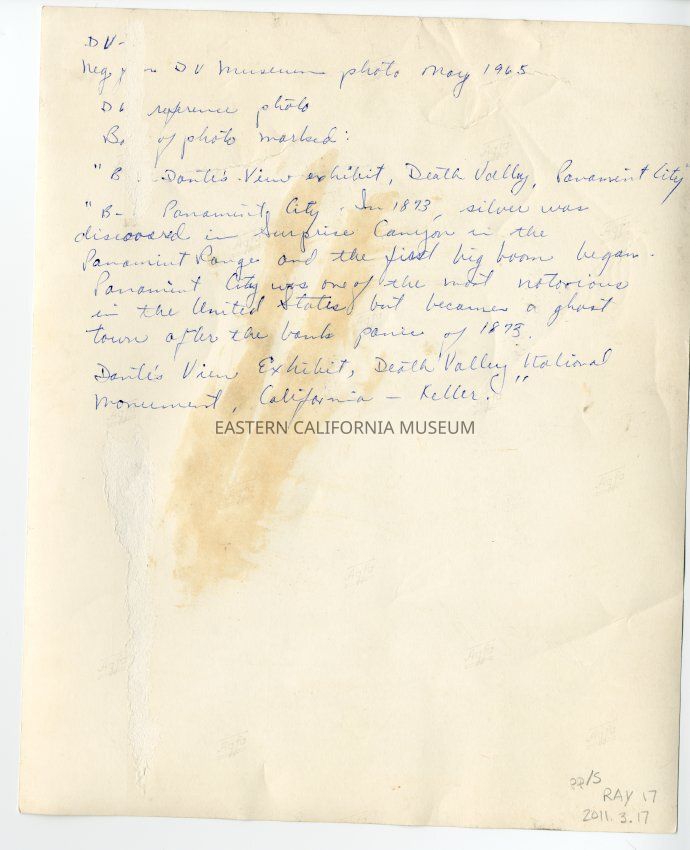 DV-
Neg. DV Museum photo May 1965
DV reference photo
Ba of photo marked:
"B Dante's View exhibit, Death Valley, Panamint City"
"B- Panamint City. In 1873, silver was
discovered in Surprise Canyon in the
Panamint Range and the first big boom began.
Panamint City was one of the most notorious
in the United States but became a ghost
town after the bank panic of 1873.
Dante's View Exhibit, Death Valley National
Monument, California – Keller."
EASTERN CALIFORNIA MUSEUM
PP/S
RAY 17
2011.3.17